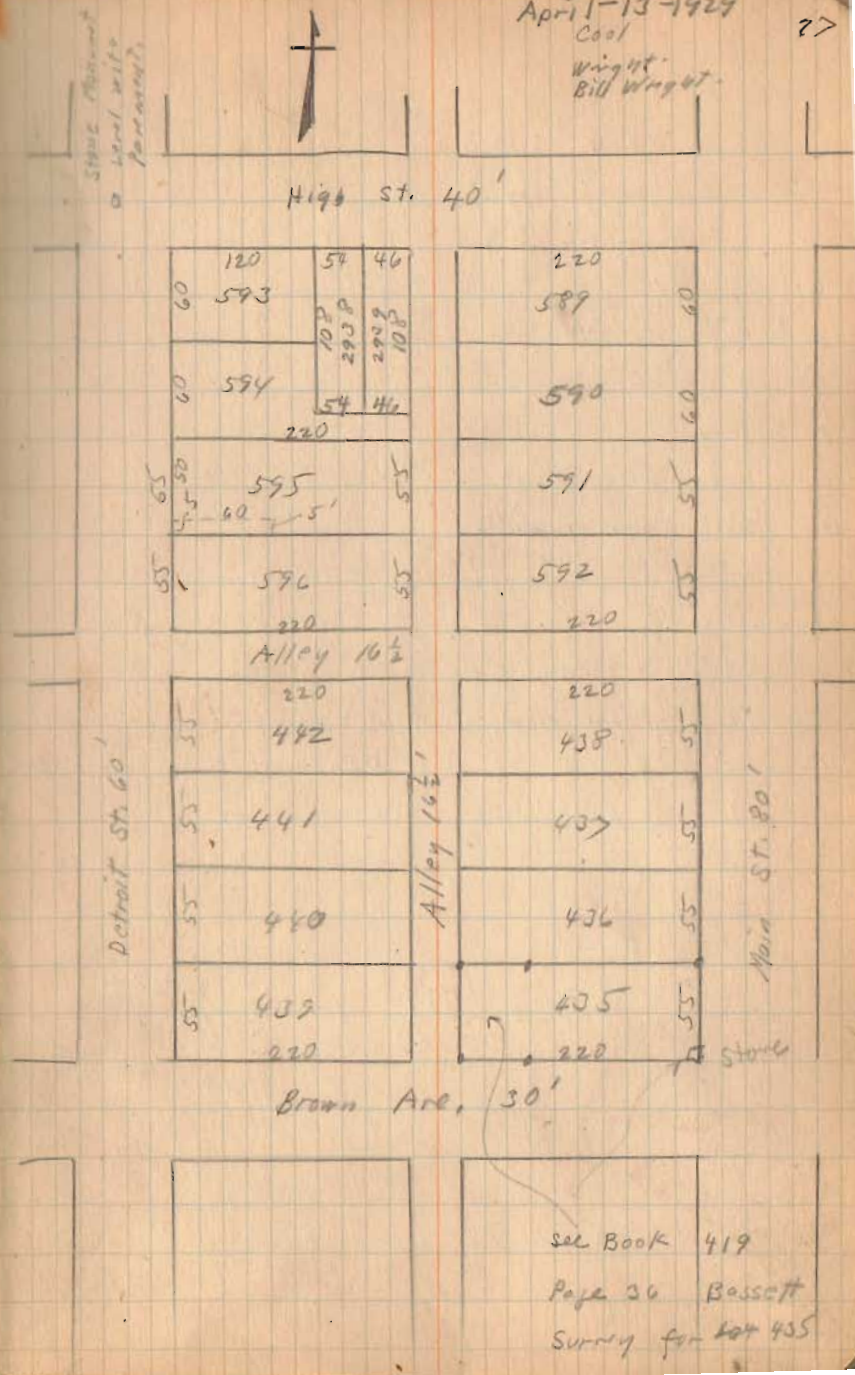 April-13-1929
27
Cool
Wright.
Bill Wright.
Stone Monument
Level with
Pavement.
High St. 40'
120 54 46
60 593
108 2938
2939 108
60 594
54 46
220
65 50 595 55
5 60 5'
55 596 55
220
220
589 60
590 60
591 55
592 55
220
Alley 16 ½
220
55 442
55 441
55 440
55 439
220
220
438 55
437 55
436 55
435 55
220
Stone
Detroit St. 60'
Alley 16 ½'
Main St. 80'
Brown Ave. 30'
see Book 419
Page 36 Bassett
Survey for Lot 435